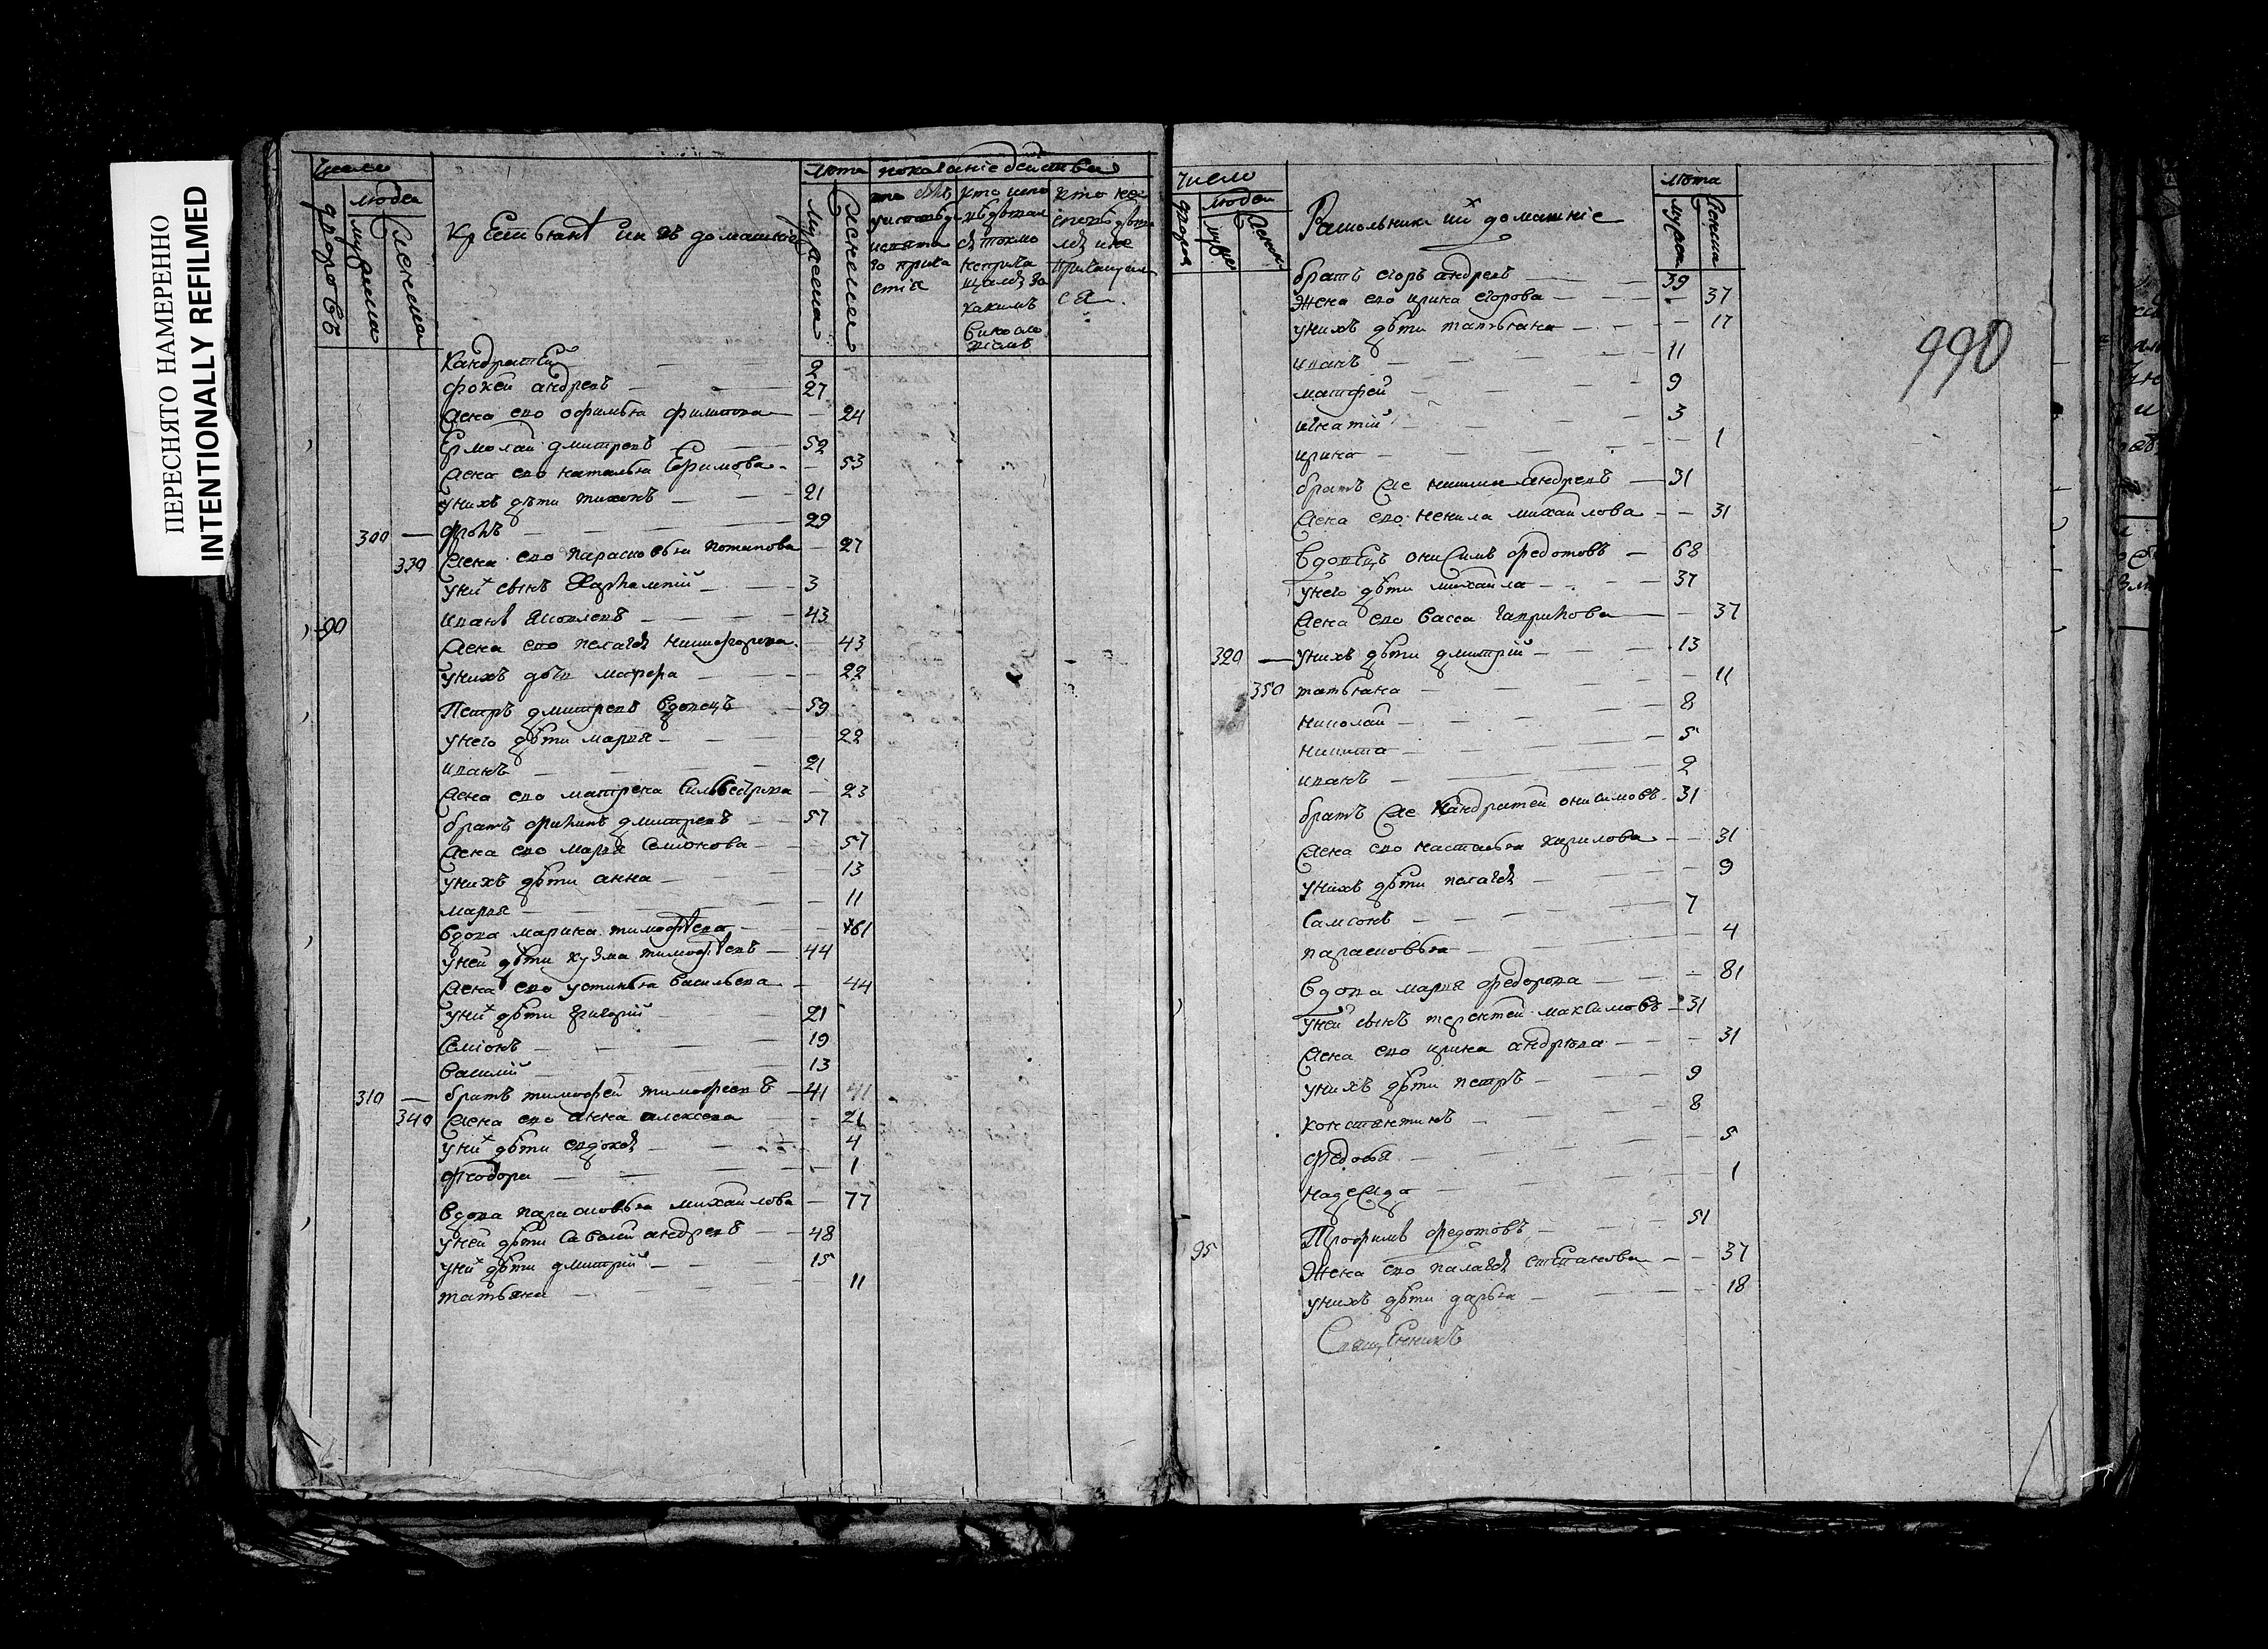 ПЕРЕСНЯТО НАМЕРЕННО
INTENTIONALLY REFILMED
число
дворовъ
людей
мужеска
женска
Крестьянѣ и ихъ домашніе
лѣта
мужеска
женска
показаніе действа
Кандратей 2
фокей андревъ 27
жена ево офимья филипова 24
Ермолай дмитревъ 52
жена ево наталья Ефимова 53
унихъ дѣти тихонъ 21
300 фролъ 29
330 жена ево парасковья потапова 27
уних сынъ Харлампий 3
90 иванъ яковлевъ 43
жена ево пелагѣя никифорова 43
унихъ дѣти 22
Петръ дмитревъ вдовецъ 59
унего дѣти марья 22
иванъ 21
жена ево матрена Сильвестрова 23
братъ филипъ дмитревъ 57
жена ево марья Семіонова 57
унихъ дѣти анна 13
марья 11
вдова марина тимофѣева 61
уней дѣти кузма тимофѣевъ 44
жена ево устинья васильева 44
уних дѣти григорий 21
Семіонъ 19
василий 13
310 братъ тимофей тимофеевъ 41 41
340 жена ево анна алексева 21
уних дѣти евдокея 4
феодора 1
вдова парасковья михайлова 77
уней дѣти Савелий андревъ 48
уних дѣти дмитрий 15
татьяна 11
число
дворовъ
людей
Раскольники и их домашніе
лѣта
мужска
женска
990
братъ егоръ андревъ 39
Жена ево ирина егорова 37
унихъ дѣти татьяна 17
иванъ 11
матфей 9
игнатий 3
ирина 1
братъ же никита андревъ 31
жена ево ненила михайлова 31
вдовецъ онисимъ федотовъ 68
унего дѣти михайла 37
жена ево васса гаврилова 37
320 унихъ дѣти дмитрий 13
350 татьяна 11
николай 8
никита 5
иванъ 2
братъ же Кандратей онисимовъ 31
жена ево настасья кирилова 31
унихъ дѣти пелагѣя 9
Самсонъ 7
парасковья 4
вдова марья федорова 81
уней сынъ терентей максимовъ 31
жена ево ирина андреева 31
унихъ дѣти петръ 9
константинъ 8
федосья 5
надежда 1
95 Трофимъ федотовъ 51
Жена ево палагѣя стЕпанова 37
унихъ дѣти дарья 18
Священникъ